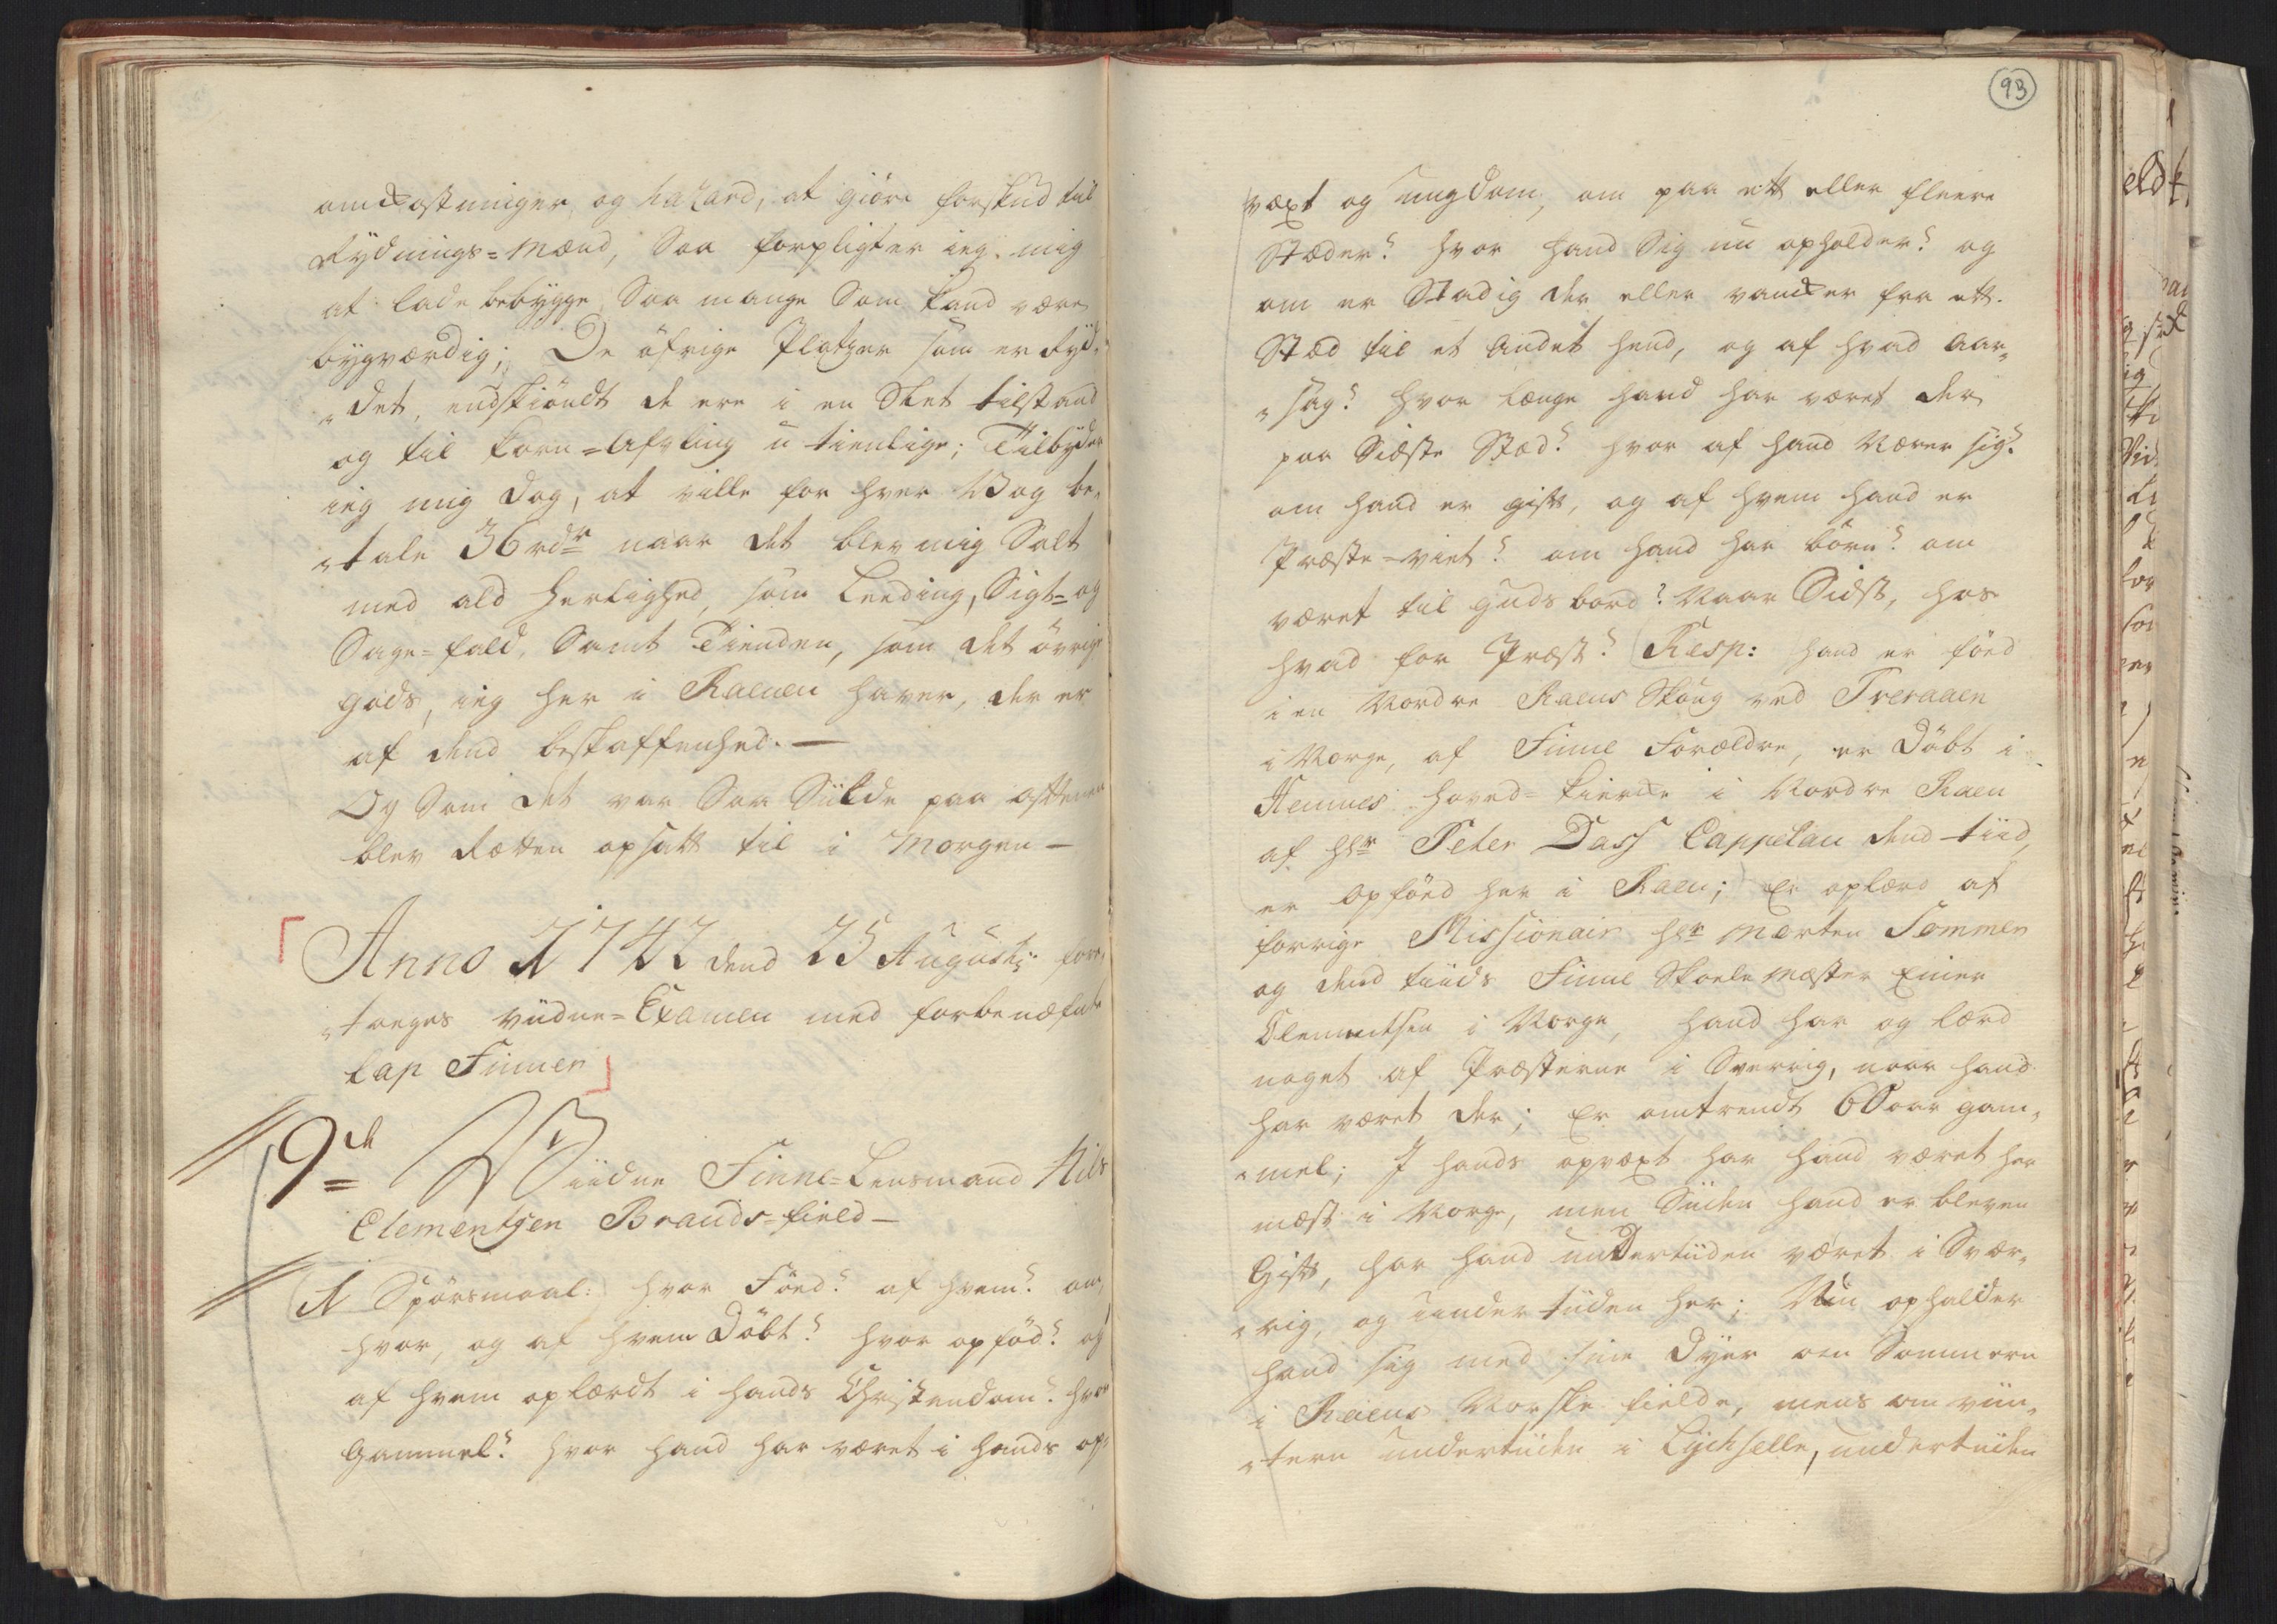 omkostninger og hazard, at giöre forskud til
Rydnings=Mænd, Saa forpligter ieg mig
at lade bebygge Saa mange Som kand være
bygværdig; De öfrige Platzer som er Ryd„
„det, endskiöndt de ere i en Slet tilstand
og til korn=Afvling u tienlige; Tilbyder
ieg mig dog, at ville for hver Vog be„
„tale 36 rdr naar det blev mig Solt
med ald Herlighed, som Leeding, Sigt= og
Sage=fald, Samt Tienden, som det övrige
gods, ieg her i Ranen haver, der er
af dend beskaffenhed. —
Og Som det var Saa Siilde paa afttenen
blev Rætten opsatt til i Morgen —
Anno 1742 dend 25 Augustj fore„
„toeges viidne=Examen med forbenæfnte
Lap Finner
9de Viidne Finne=Lensmand Nils
Clementsen Brands=field —
(1 Spörsmaal:) hvor Föed? af hvem? om,
hvor, og af hvem Döbt? hvor opföd? og
af hvem oplærdt i hands Christendom? hvor
Gammel? hvor hand har været i hands op„
93
væxt og ungdom, om paa ett eller fleere
Stæder? hvor hand Sig nu opholder? og
om er Stadig der eller vanker fra ett
Stæd til et Andet hend, og af hvad Aar„
„sag? hvor længe hand har været der
paa Sidste Stæd? hvor af hand Nærer sig?
om hand er gift, og af hvem hand er
Præste=viet? om hand har börn? om
været til Guds bord? Naar Sidst, hos
hvad for Præst? (Resp: hand er föed
i en Nordre Raens Skoug ved Tveraaen
i Norge, af Finne Forældre, er Döbt i
Hemnes hoved=kierke i Nordre Raen
af hr Peter Dass Cappelan dend tiid,
er opföed her i Raen; Er oplærd af
forrige Missionair hr Morten Sommer
og dend tiids Finne Skolemæster Einer
Clementsen i Norge, hand har og lærd
noget af Præsterne i Sverrig, naar hand
har været der; Er omtrendt 60 aar gam„
„mel; I hands opvæxt har hand været her
mæst i Norge, men Siiden hand er bleven
Gift, har hand undertiiden været i Sver„
„rig, og under tiiden her; Nu opholder
hand sig med sine Dyer om Sommeren
i Raens Norske fielde, mens om viin„
„tern undertiiden i Lychselle, undertiiden